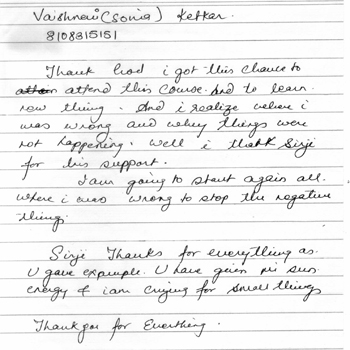 Vaishnavi (Sonia) Ketkar.
8108315151
Thank God i got this chance to
attend this course. And to learn
new thing. And i realize where i
was wrong and why things were
not happening. Well i thank Sirji
for his support.
I am going to start again all.
where i was wrong to stop the negative
things.
Sirji Thanks for everything as.
U gave example. U have given me sun
energy & i am crying for small things
Thankyou for Everthing.